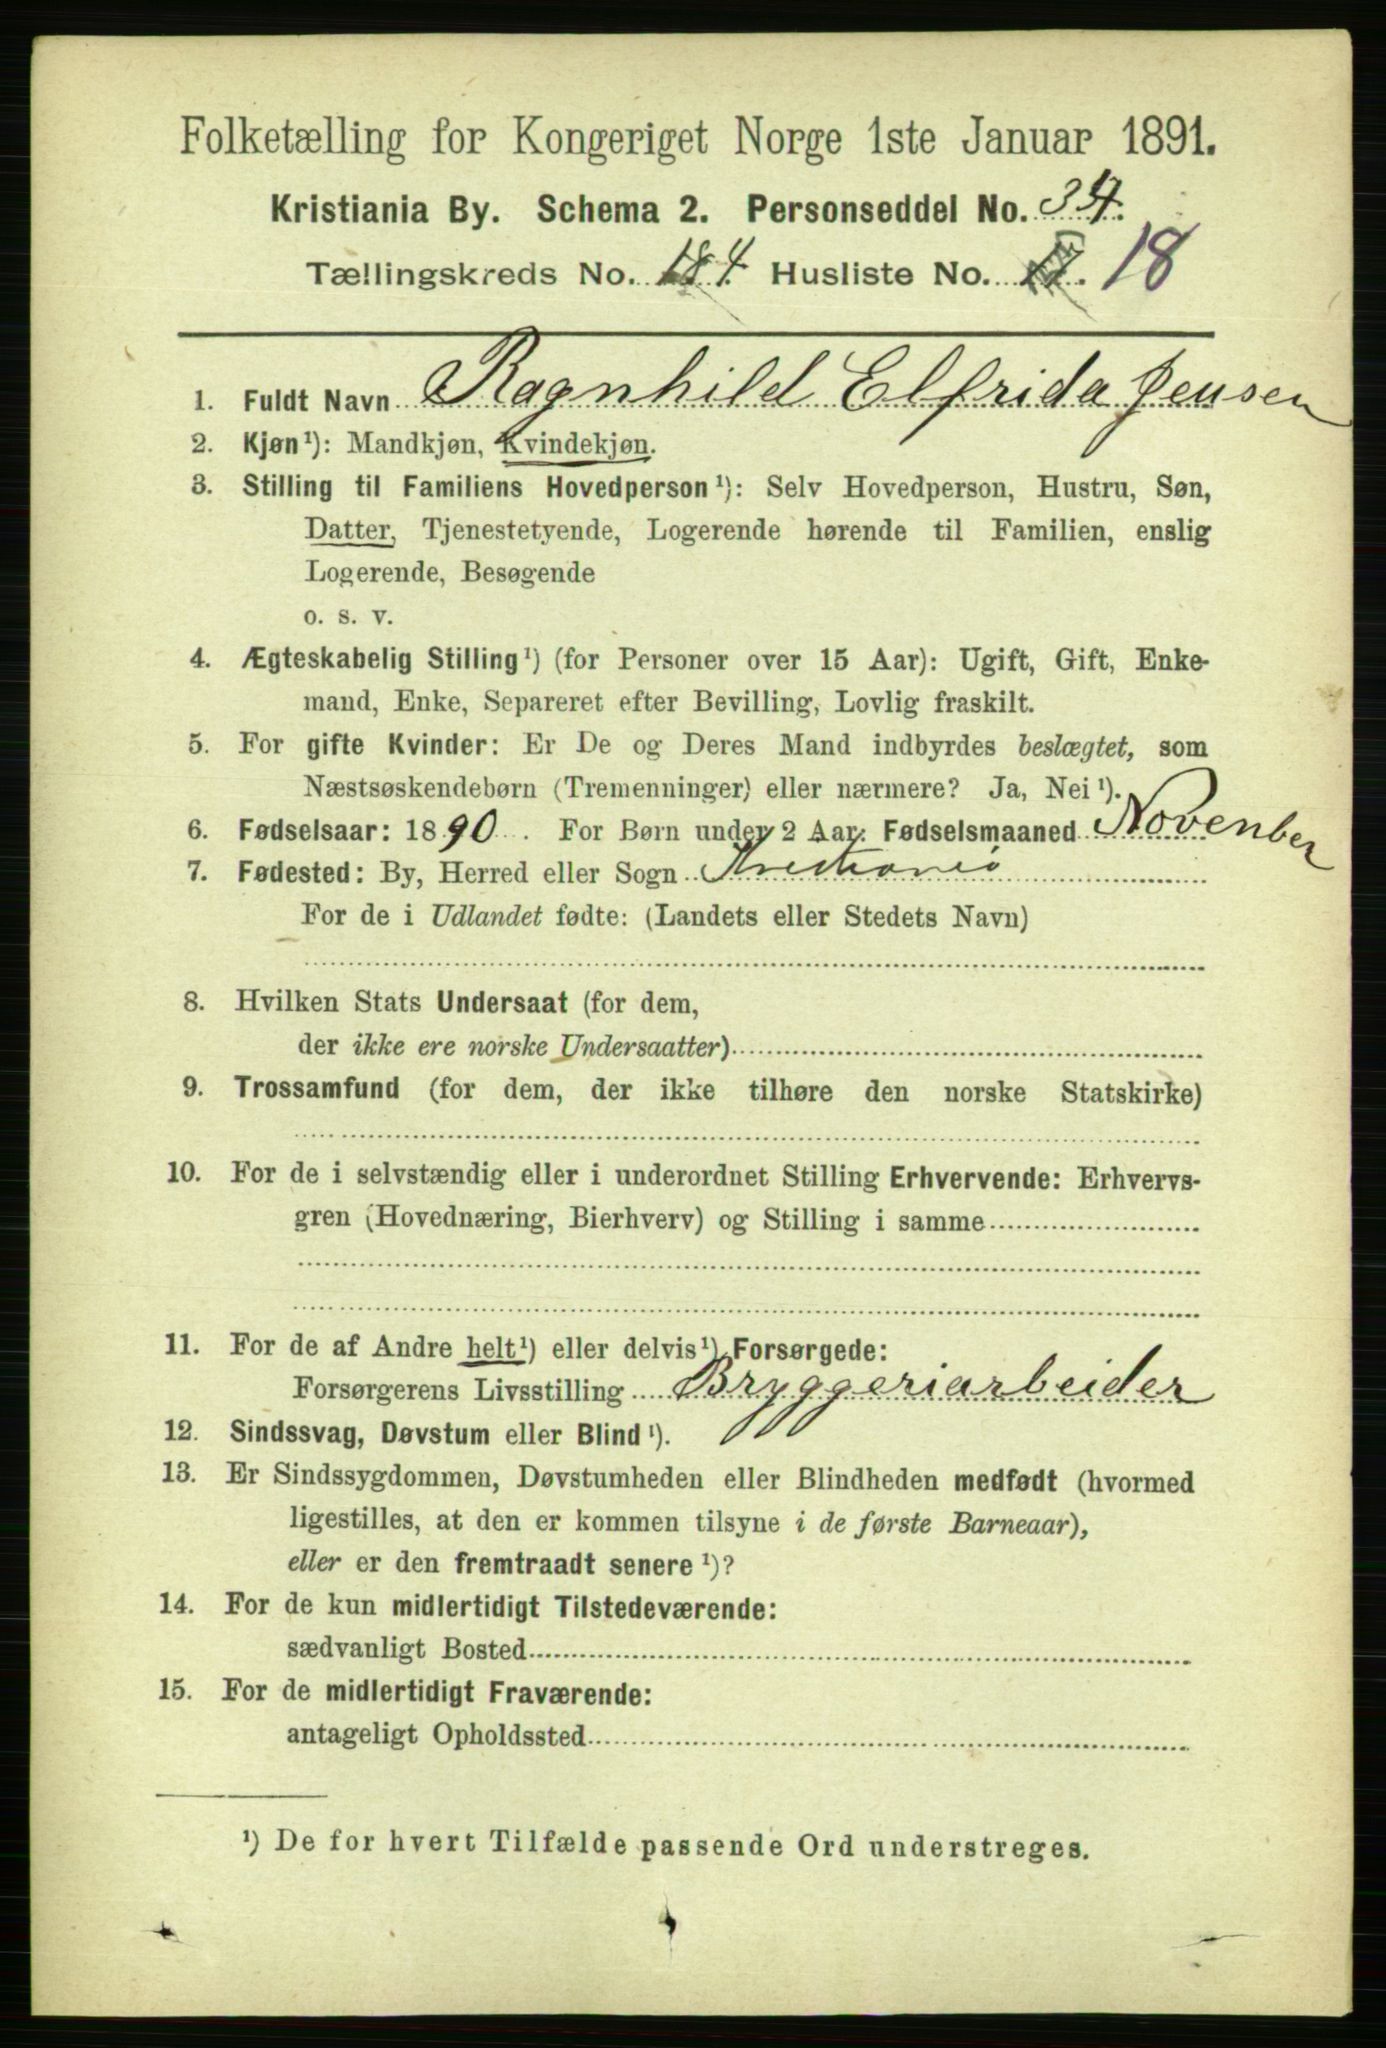 Folketælling for Kongeriget Norge 1ste Januar 1891.
Kristiania By. Schema 2. Personseddel No. 34.
Tællingskreds No. 184. Husliste No. 18
1. Fuldt Navn Ragnhild Elfrida Jensen
2. Kjøn¹): Mandkjøn, Kvindekjøn.
3. Stilling til Familiens Hovedperson¹): Selv Hovedperson, Hustru, Søn,
Datter, Tjenestetyende, Logerende hørende til Familien, enslig
Logerende, Besøgende
o. s. v.
4. Ægteskabelig Stilling¹) (for Personer over 15 Aar): Ugift, Gift, Enke-
mand, Enke, Separeret efter Bevilling, Lovlig fraskilt.
5. For gifte Kvinder: Er De og Deres Mand indbyrdes beslægtet, som
Næstsøskendebørn (Tremenninger) eller nærmere? Ja, Nei¹).
6. Fødselsaar: 1890. For Børn under 2 Aar: Fødselsmaaned Novenber
7. Fødested: By, Herred eller Sogn Kristiania
For de i Udlandet fødte: (Landets eller Stedets Navn)
8. Hvilken Stats Undersaat (for dem,
der ikke ere norske Undersaatter)
9. Trossamfund (for dem, der ikke tilhøre den norske Statskirke)
10. For de i selvstændig eller i underordnet Stilling Erhvervende: Erhvervs-
gren (Hovednæring, Bierhverv) og Stilling i samme
11. For de af Andre helt¹) eller delvis¹) Forsørgede:
Forsørgerens Livsstilling Bryggeriarbeider
12. Sindssvag, Døvstum eller Blind¹).
13. Er Sindssygdommen, Døvstumheden eller Blindheden medfødt (hvormed
ligestilles, at den er kommen tilsyne i de første Barneaar),
eller er den fremtraadt senere¹)?
14. For de kun midlertidigt Tilstedeværende:
sædvanligt Bosted
15. For de midlertidigt Fraværende:
antageligt Opholdssted
¹) De for hvert Tilfælde passende Ord understreges.